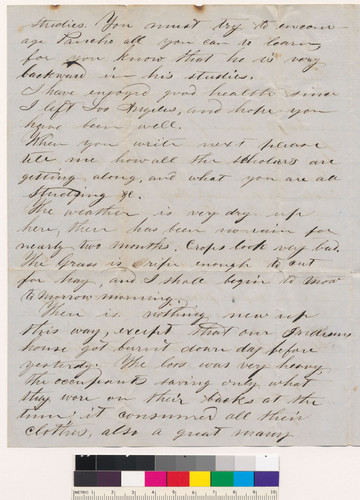 studies. You must try to encour-
age Pancho all you can to learn
for you know that he is very
backward in his studies.
I have enjoyed good health since
I left Los Angeles, and hope you
have been well.
When you write next please
tell me how all the scholars are
getting along, and what you are all
studying &c.
The weather is very dry up
here, there has been no rain for
nearly two months. Crops look very bad.
The Grass is ripe enough to cut
for hay, and I shall begin to mow
to morrow morning.
There is nothing new up
this way, except that our Indians
house got burnt down day before
yesterday. The loss was very heavy
the occupants saving only what
they wore on their backs at the
time; it consumed all their
clothes, also a great many
METRIC 1 2 3 4 5 6 7 8 9 10